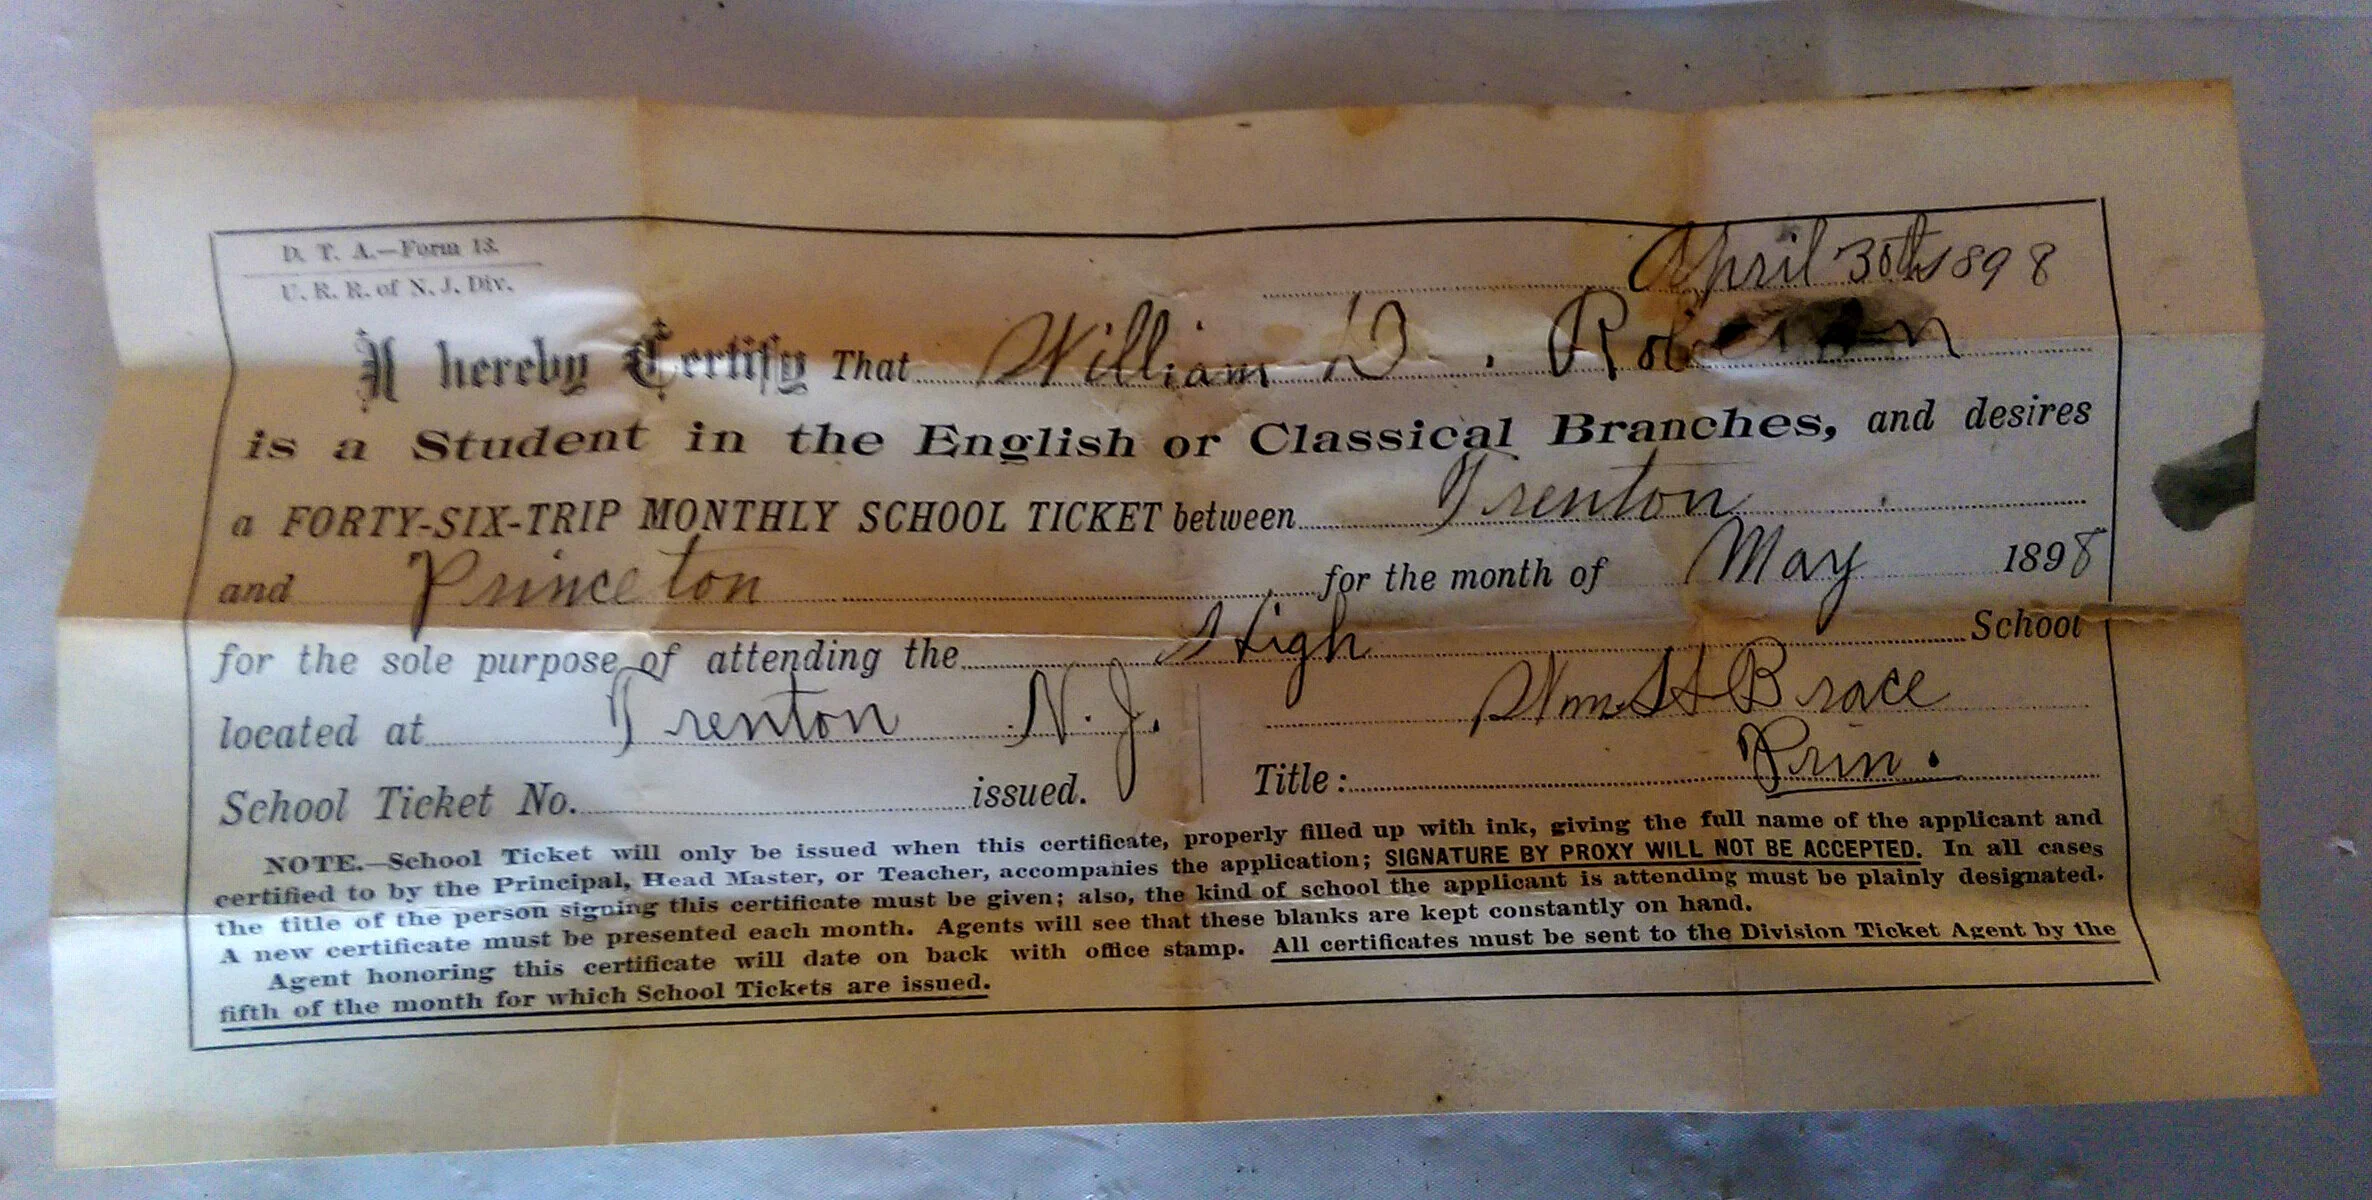 D. T. A.—Form 13.
U. R. R. of N. J. Div.
April 30th 1898
I hereby Certify That William D. 
is a Student in the English or Classical Branches, and desires
a FORTY-SIX-TRIP MONTHLY SCHOOL TICKET between Trenton
and Princeton for the month of May 1898
for the sole purpose of attending the High School
located at Trenton N. J. Wm H Brace
School Ticket No. issued. Title: Prin.
NOTE.—School Ticket will only be issued when this certificate, properly filled up with ink, giving the full name of the applicant and
certified to by the Principal, Head Master, or Teacher, accompanies the application; SIGNATURE BY PROXY WILL NOT BE ACCEPTED. In all cases
the title of the person signing this certificate must be given; also, the kind of school the applicant is attending must be plainly designated.
A new certificate must be presented each month. Agents will see that these blanks are kept constantly on hand.
Agent honoring this certificate will date on back with office stamp. All certificates must be sent to the Division Ticket Agent by the
fifth of the month for which School Tickets are issued.